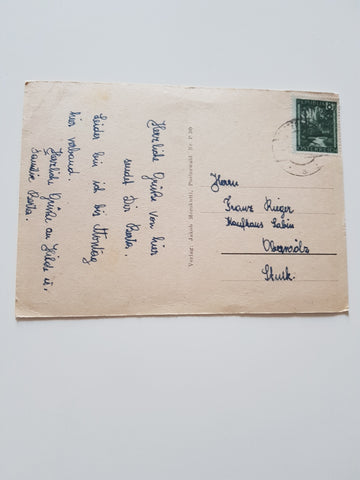 Herzliche Grüße von hier
sendet Dir Berta.
Leider bin ich bis Montag
hier verbannt.
Herzliche Grüße an Hilde u.
Familie Berta.
Verlag: Jakob Mersknitl, Pusterwald Nr P 30
Herrn
Franz Rieger
Kaufhaus Sabin
Oberwölz
Stmk.